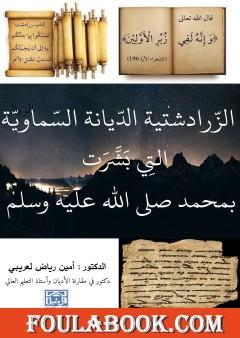 قال الله تعالى
﴿وَإِنَّهُ لَفِي
زُبُرِ الْأَوَّلِينَ﴾
(الشعراء، الآية 196)
الزّرادشتية الدّيانة السّماويّة
التِي بَشَّرَت
بمحمد صلى الله عليه وسلم
الدكتور: أمين رياض لعريبي
دكتور في مقارنة الأديان وأستاذ التعليم العالي
FOULABOOK.COM